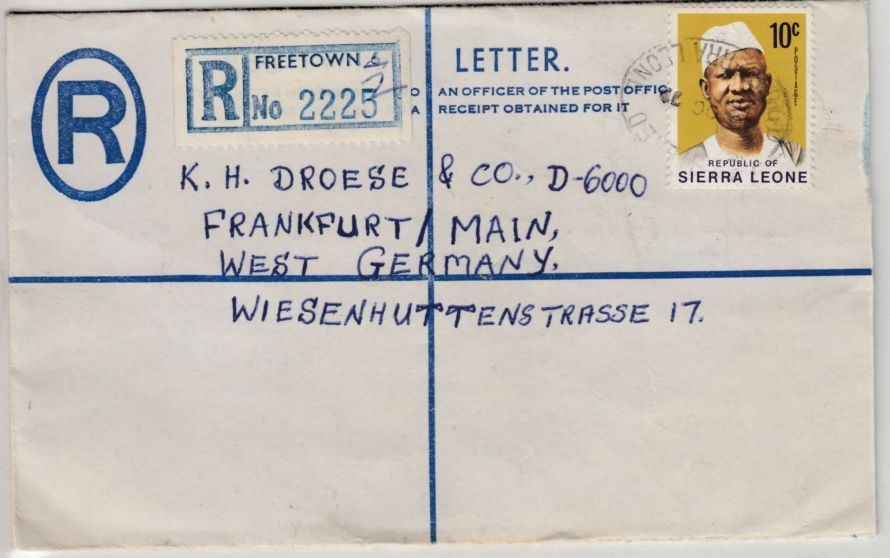 R
FREETOWN
R No 2225
LETTER.
AN OFFICER OF THE POST OFFIC
RECEIPT OBTAINED FOR IT
10c
POSTAGE
REPUBLIC OF
SIERRA LEONE
K. H. DROESE & CO., D-6000
FRANKFURT/MAIN,
WEST GERMANY.
WIESENHUTTENSTRASSE 17.